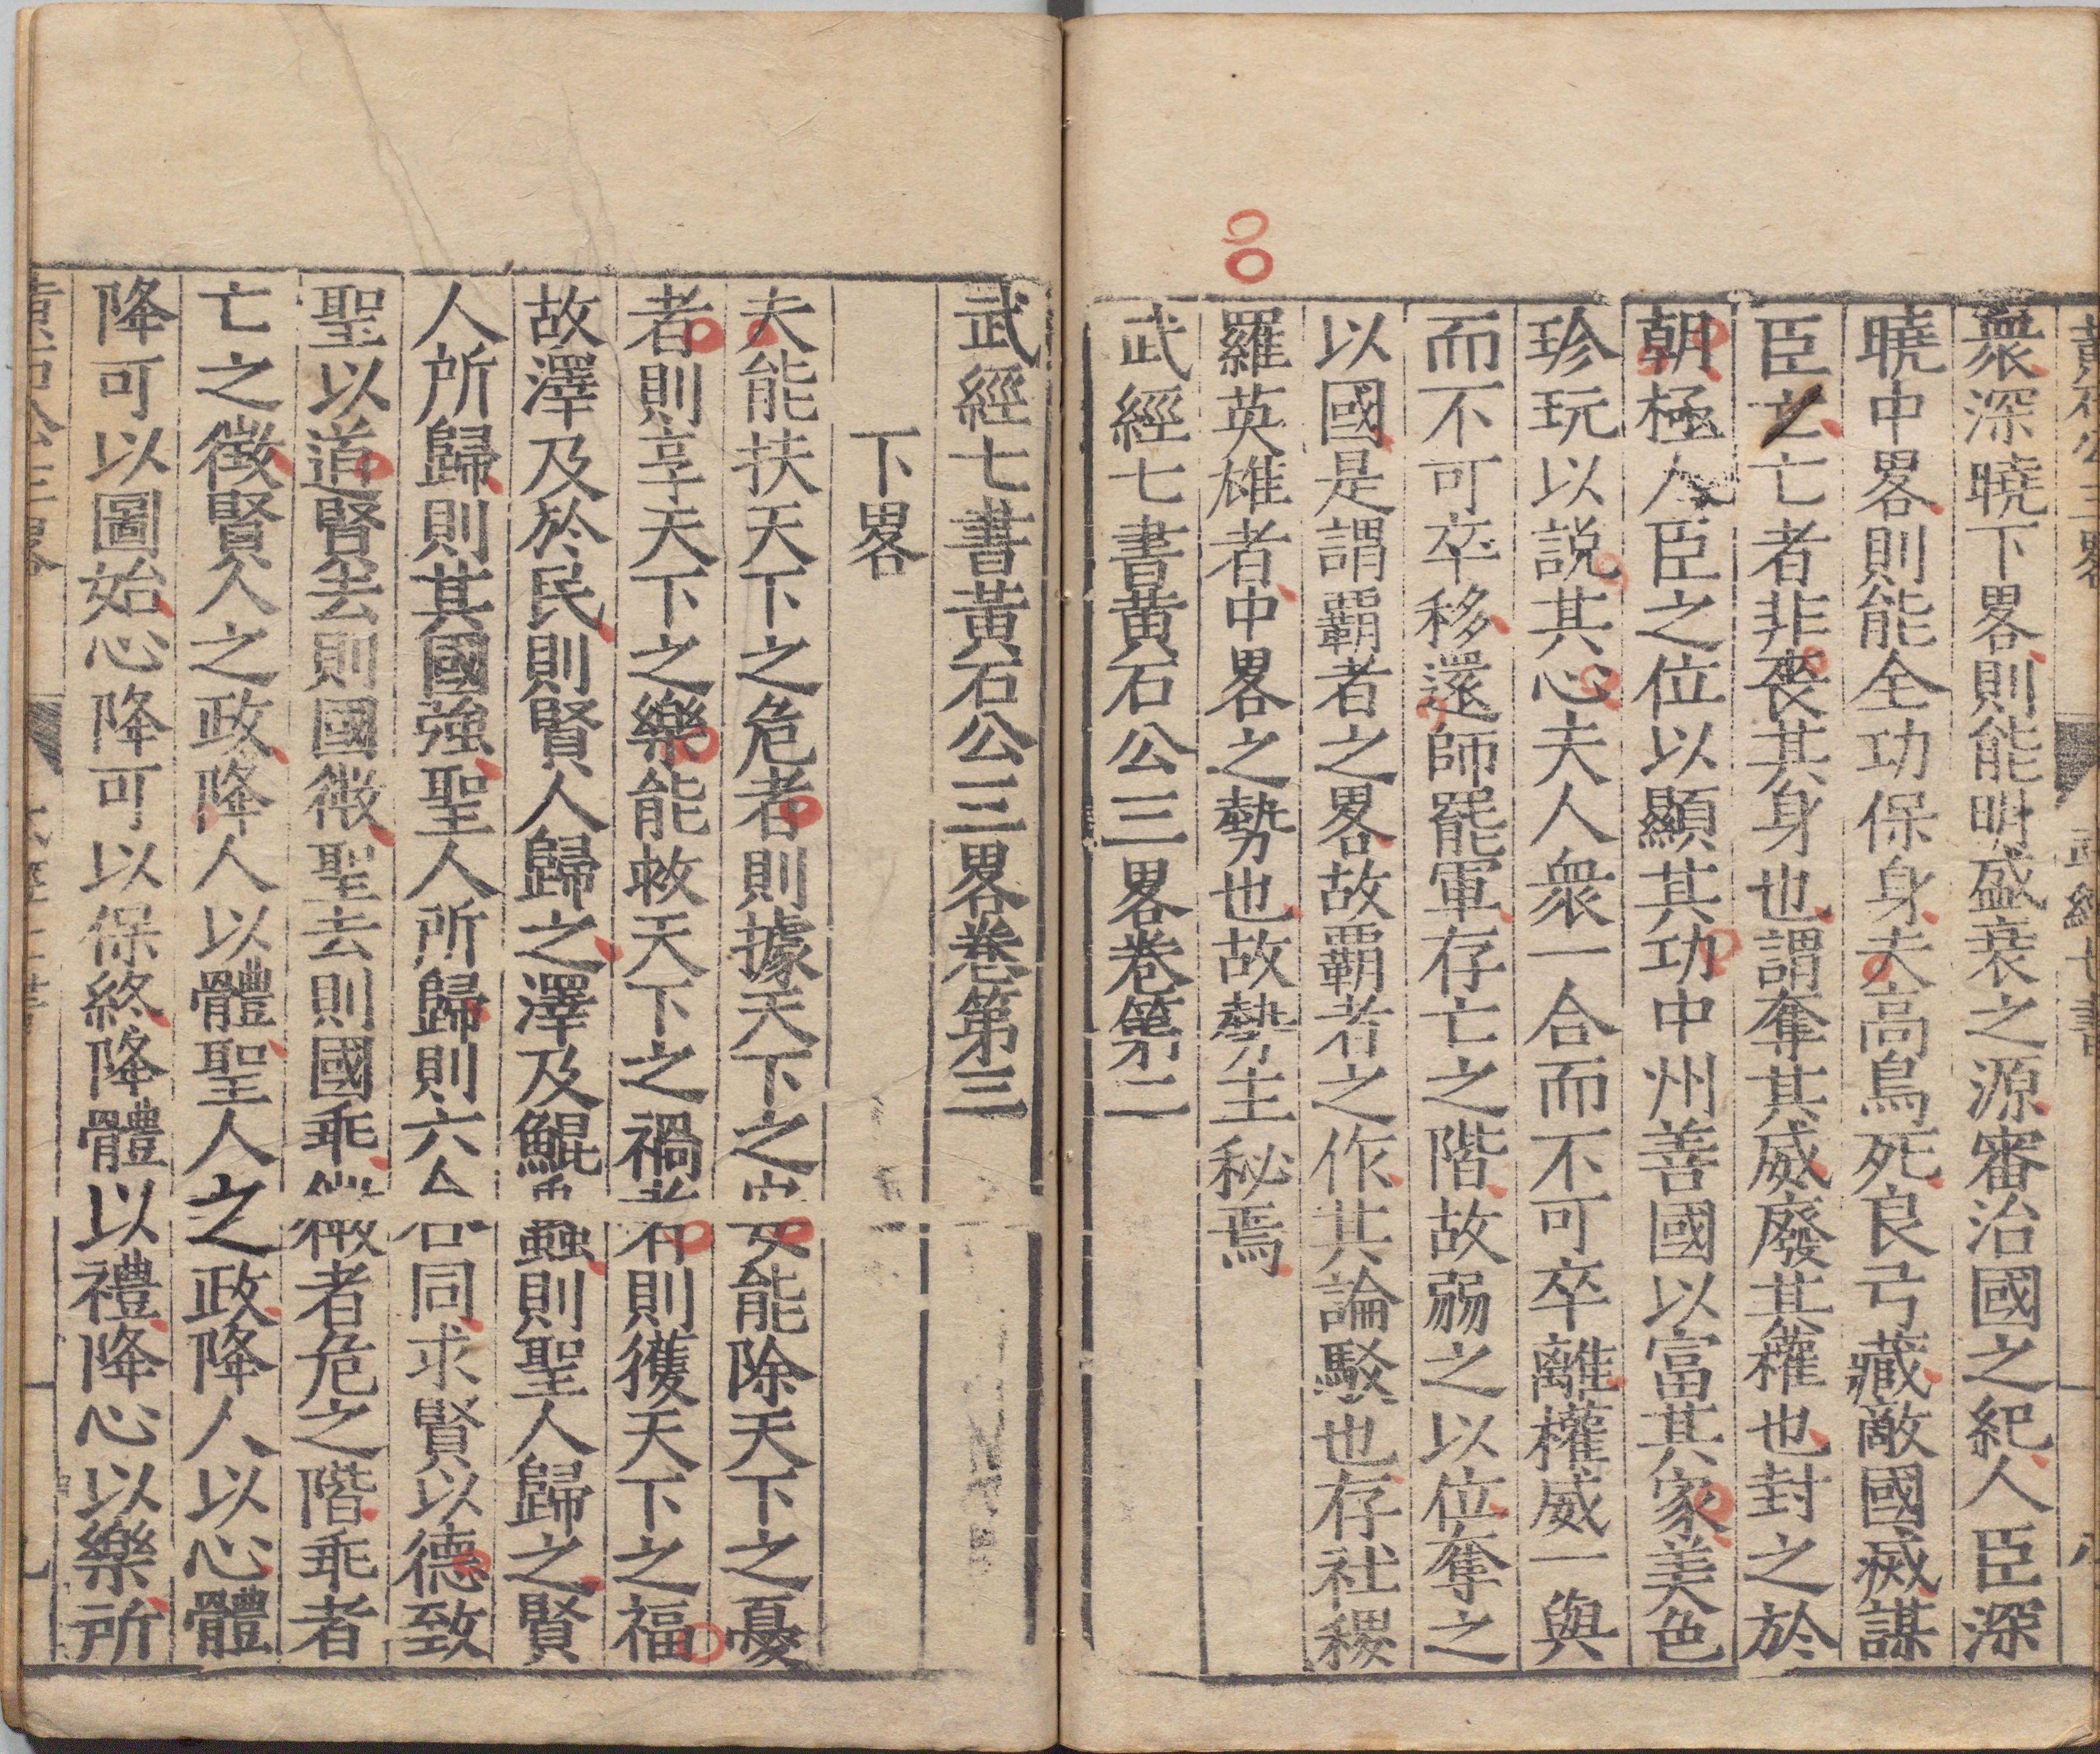 黃石公三畧 武經七書 八
衆深曉下畧則能明盛衰之源審治國之紀人臣深
曉中畧則能全功保身夫高鳥死良弓藏敵國滅謀
臣亡亡者非喪其身也謂奪其威廢其權也封之於
朝極人臣之位以顯其功中州善國以富其家美色
珍玩以説其心夫人衆一合而不可卒離權威一與
而不可卒移還師罷軍存亡之階故弱之以位奪之
以國是謂霸者之畧故霸者之作其論駁也存社稷
羅英雄者中畧之勢也故勢主秘焉
武經七書黃石公三畧卷第二
武經七書黃石公三畧卷第三
下畧
夫能扶天下之危者則據天下之安能除天下之憂
者則享天下之樂能救天下之禍者則獲天下之福
故澤及於民則賢人歸之澤及鯤蟲則聖人歸之賢
人所歸則其國強聖人所歸則六合同求賢以德致
聖以道賢去則國微聖去則國乖微者危之階乖者
亡之徴賢人之政降人以體聖人之政降人以心體
降可以圖始心降可以保終降體以禮降心以樂所